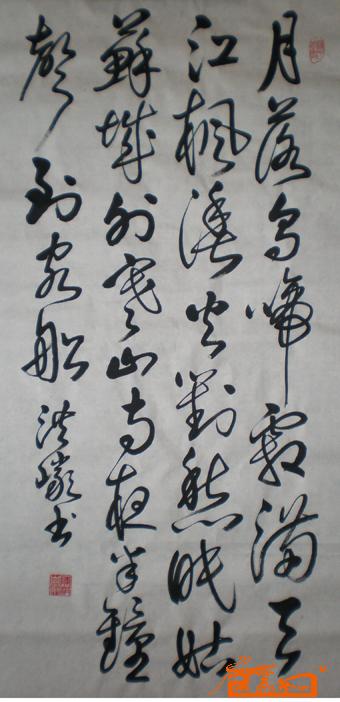 月落乌啼霜满天
江枫渔火对愁眠姑
苏城外寒山寺夜半钟
声到客船 洪岭书